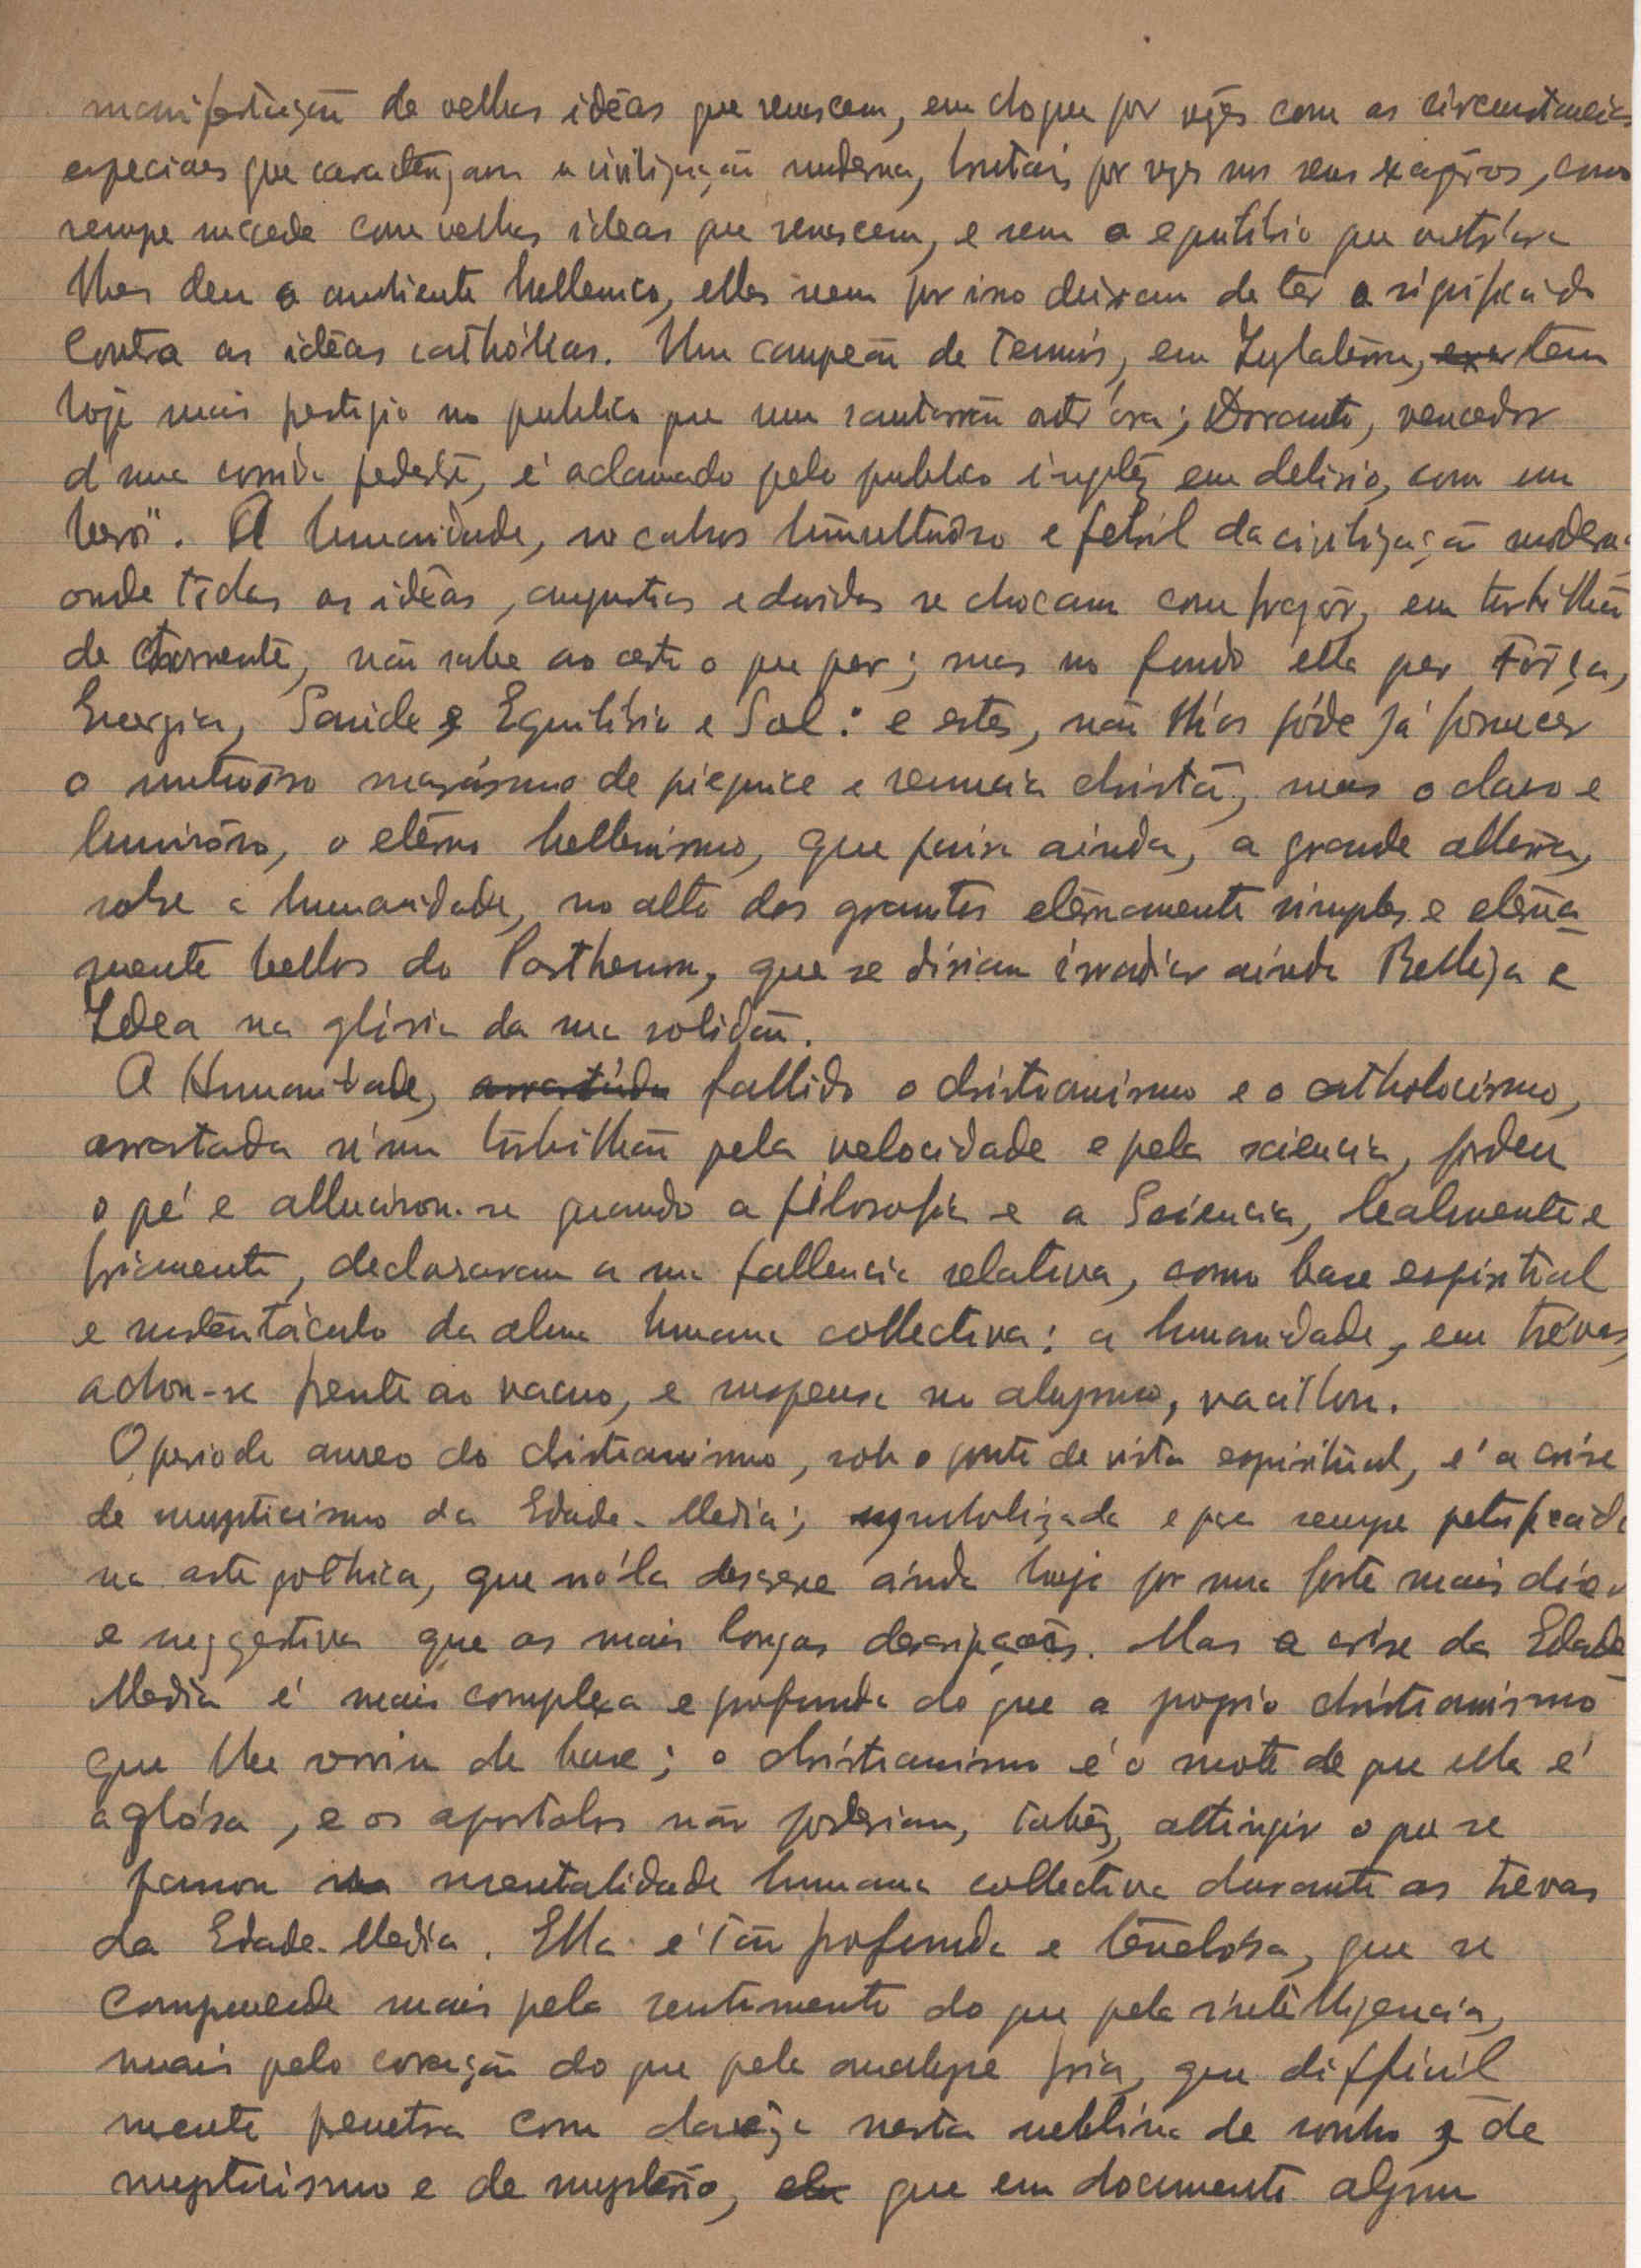 manifestação de velhas idéas que renascem, em choque por vezes com as circumstancias
especiaes que caracterizam a civilização moderna, brutais por vezes nos seus exagêros, como
sempre succede com velhas ideas que renascem, e sem o equilibrio que outróra
lhes deu o ambiente hellenico, ellas nem por isso deixam de ter o significado
contra as idéas cathólicas. Um campeão de tennis, em Inglatêrra, tem
hoje mais prestigio no publico que um santarrão outróra; Dorando, vencedor
d'uma corrida pedestre, é aclamado pelo publico inglêz em delirio, com um
heroi". A humanidade, no cahos tumultuôso e febril da civilização moderna
onde tôdas as idéas, angustias e duvidas se chocam com fragôr, em turbilhão
de torrente, não sabe ao certo o que quer; mas no fundo ella quer Fôrça,
Energia, Saúde, Equilibrio e Sol: e estes, não lh'os póde já fornecer
o marásmo de pieguice e renuncia christã, mas o claro e
luminôso, o etérno hellenismo, que paira ainda, a grande altura,
sobre a humanidade, no alto dos granitos etérnamente simples e etérna-
mente bellos do Parthenon, que se diriam irradiar ainda Belleza e
Idea na glória da sua solidão.
A Humanidade, fallido o christianismo e o catholocismo,
arrastada n'um turbilhão pela velocidade e pela sciencia, perdeu
o pé e allucinou-se quando a filosofia e a Sciencia, lealmente e
friamente, declararam a sua fallencia relativa, como base espiritual
e sustentáculo da alma humana collectiva: a humanidade, em trévas,
achou-se frente ao vacuo, e suspensa no abysmo, vacillou.
O periodo aureo do christianismo, sob o ponto de vista espiritual, é a crise
de mysticismo da Edade-Media; symbolizada e para sempre petrificada
na arte gothica, que nó'la descreve ainda hoje por uma forte mais
e suggestiva que as mais longas descripções. Mas a crise da Edade
Media é mais complexa e profunda do que o proprio christianismo
que lhe serviu de base; o christianismo é o mote de que ella é
a glósa, e os apostolos não poderiam, talvêz, attingir o que se
passou na mentalidade humana collectiva durante as trevas
da Edade-Media. Ella é tão profunda e tenebrósa, que se
comprehende mais pelo sentimento do que pela intelligencia,
mais pelo coração do que pela analyse fria, que difficil
mente penetra com clarêza nesta neblina de sonho, de
mysticismo e de mystério, que em documento algum